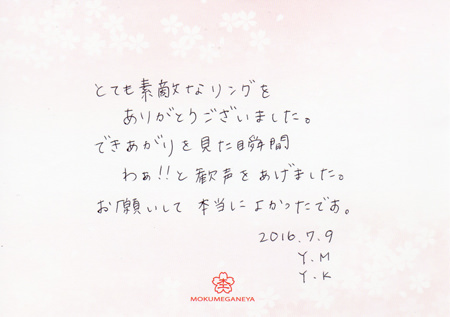 とても素敵なリングを
ありがとうございました。
できあがりを見た瞬間
わぁ!!と歓声をあげました。
お願いして本当によかったです。
2016.7.9
Y.M
Y.K
MOKUMEGANEYA